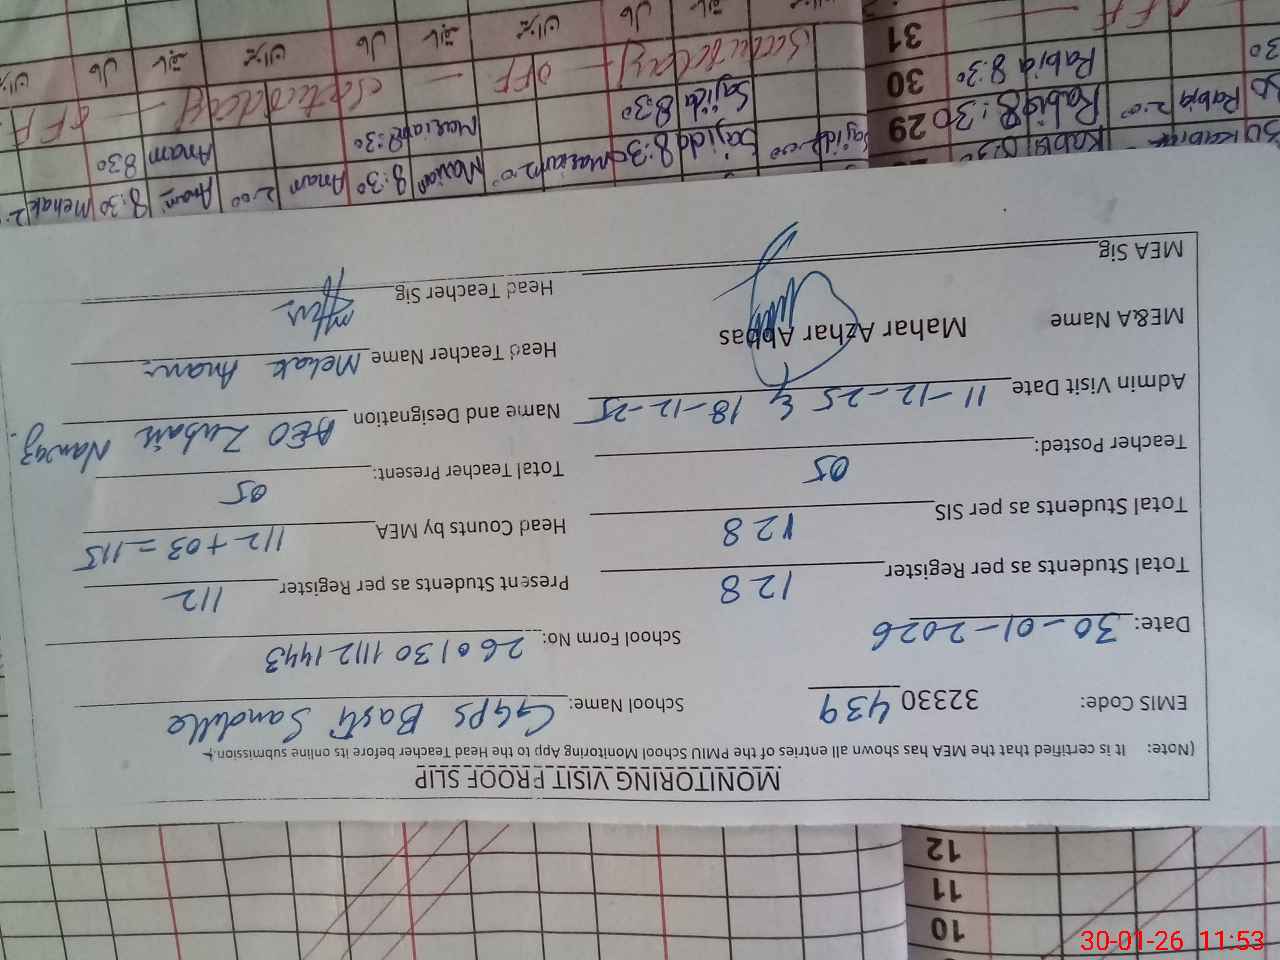 MONITORING VISIT PROOF SLIP
(Note: It is certified that the MEA has shown all entries of the PMIU School Monitoring App to the Head Teacher before its online submission.)
EMIS Code: 32330 439 School Name: GGPS Basti Sandilla
Date: 30-01-2026 School Form No: 260130 1112 1443
Total Students as per Register 128 Present Students as per Register 112
Total Students as per SIS 128 Head Counts by MEA 112+03=115
Teacher Posted: 05 Total Teacher Present: 05
Admin Visit Date 11-12-25 & 18-12-25 Name and Designation AEO Zubair Nawaz
ME&A Name Mahar Azhar Abbas Head Teacher Name Mehak Anam
MEA Sig Head Teacher Sig
10
11
12
29 Rabia 8:30
30 Rabia 8:30
31
Sajida 8:30
Sajida 8:30
Maria 8:30
Anam 8:30
Anam 2:00
OFF
30-01-26 11:53